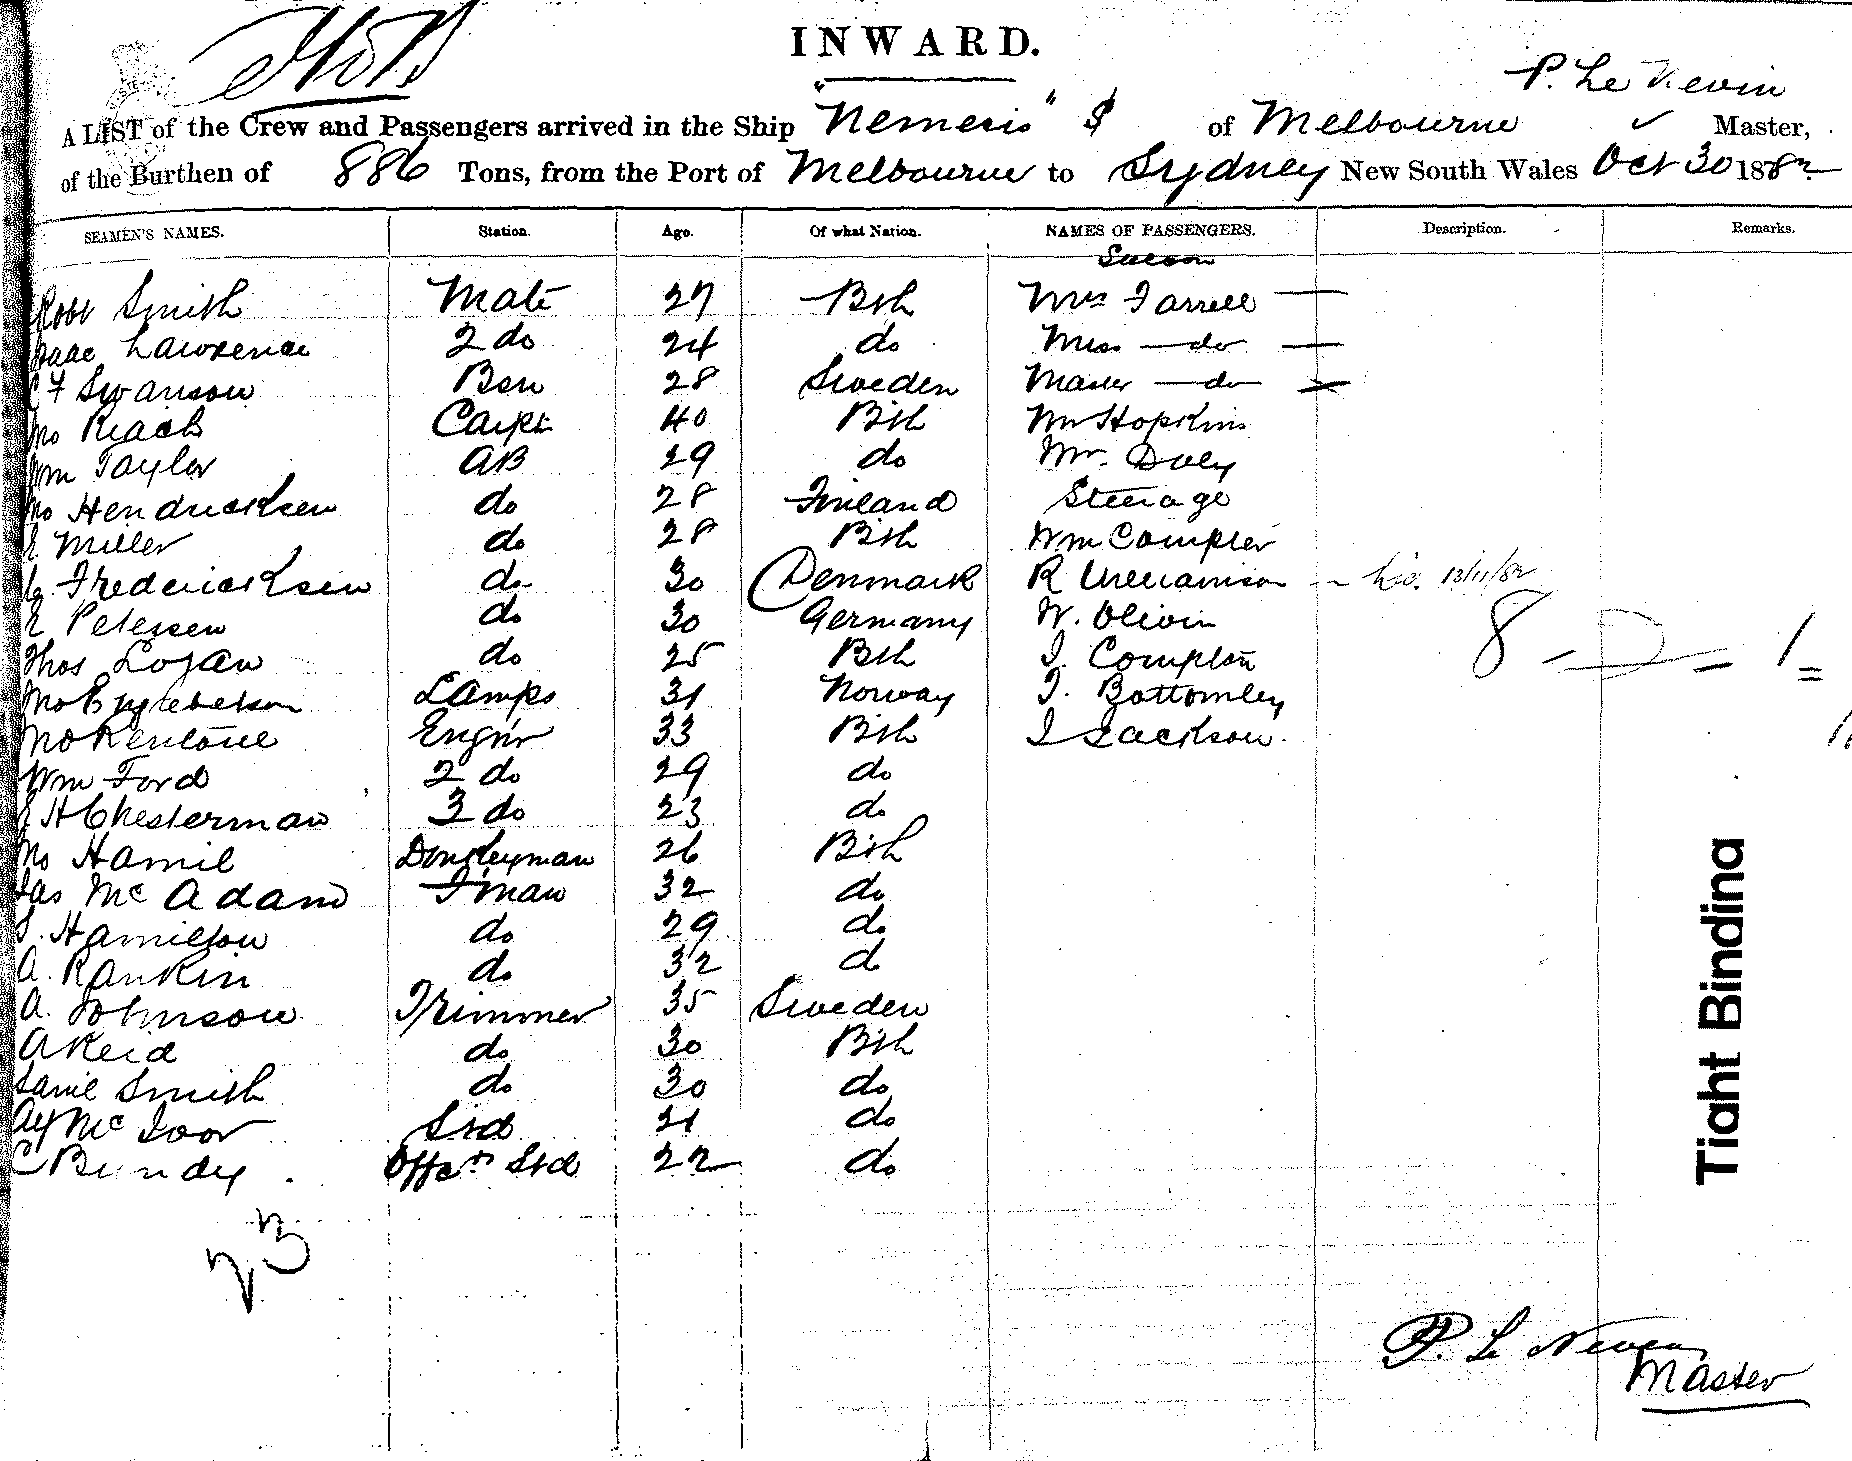 INWARD.
P. Le Nevin
A LIST of the Crew and Passengers arrived in the Ship "Nemesis" S of Melbourne Master,
of the Burthen of 886 Tons, from the Port of Melbourne to Sydney New South Wales Oct 30 1882
SEAMEN'S NAMES. Station. Age. Of what Nation. NAMES OF PASSENGERS. Description. Remarks.
Saloon
Robt Smith Mate 27 Bsh Mrs Farrell
Isaac Lawrence 2 do 24 do Miss do
C F Swanson Bsn 28 Sweden Master do
Jno Riach Carpt 40 Bsh Mr Hopkins
Wm Taylor AB 29 do Mr. Daly
Jno Hendricksen do 28 Finland Steerage
Miller do 28 Bsh Wm Compter
Fredericksen do 30 Denmark R Williamson 13/11/82
Petersen do 30 Germany W. Olivin
8 = 1
Thos Logan do 25 Bsh J. Compton
Jno Lamps 31 Norway J. Bottomley
Jno Engnr 33 Bsh J Jackson.
Wm Ford 2 do 29 do
H Chesterman 3 do 23 do
Jno Hamil Donkeyman 26 Bsh
Jas McAdam Fman 32 do
Hamilton do 29 do
A. Rankin do 32 do
A. Johnson Trimmer 35 Sweden
A Reid do 30 Bsh
Smith do 30 do
Alf McIvor Std 21 do
C Bundy Offcrs Std 22 do
23
Tight Binding
P. Le Neven
Master